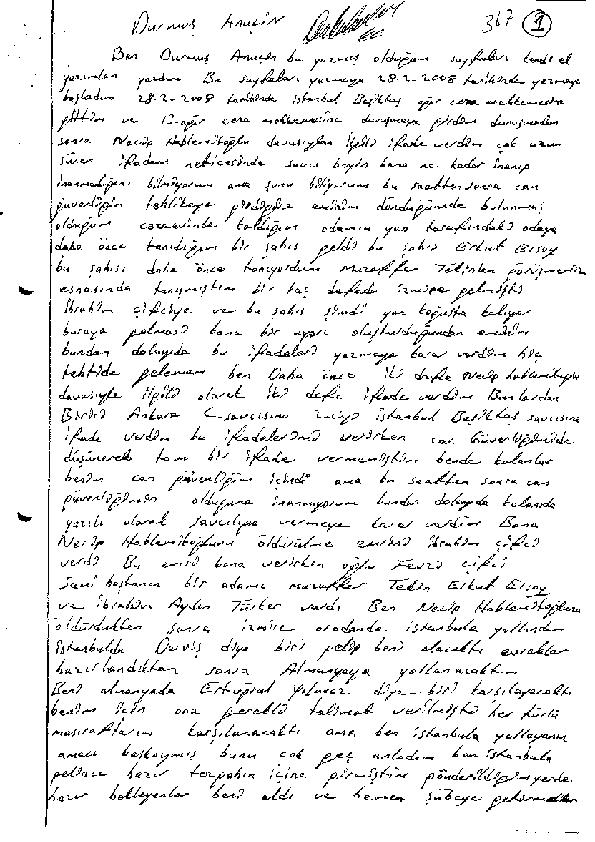 Durmuş Anuçin 367 1
Ben Durmuş Anuçin bu yazmış olduğum sayfaları kendi el
yazımdan yazdım Bu sayfaları yazmaya 28.2-2008 tarihinde yazmaya
başladım 28-2-2008 tarihinde istanbul Beşiktaş ağır ceza mahkemesine
gittim ve ağır ceza mahkemesine duruşmaya girdim duruşmadan
sonra Necip Hablemitoğlu davasıyla ilgili ifade verdim çok uzun
süren ifadem neticesinde savcı beyin bana ne kadar inanıp
inanmadığını bilmiyorum ama şunu biliyorum bu saatten sonra can
güvenliğim tehlikeye girdiğine eminim döndüğümde bulunmuş
olduğum cezaevinde kaldığım odamın yan tarafındaki odaya
daha önce tanıdığım bir şahıs geldi bu şahıs Erkut Ersoy
bu şahısı daha önce tanıyordum Muzaffer Tekinken
esnasında tanışmıştım bir kaç defada izmire gelmişti
ibrahim çiftçiye ve bu şahıs şimdi yan koğuşta kalıyor
buraya gelmesi bana bir uyarı oluşturduğundan eminim
bundan dolayıda bu ifadeleri yazmaya karar verdim
tehtide gelemem ben Daha önce iki defa Necip hablemitoğlu
davasıyla ilgili olarak iki defa ifade verdim Bunlardan
Birini Ankara savcısına istanbul Beşiktaş savcısına
ifade verdim bu ifadelerimi verirken can Güvenliğimide
düşünerek tam bir ifade vermemiştim bende bulunlar
benim can güvenliğim içindi ama bu saatten sonra can
güvenliğimin olduğuna inanmıyorum bundan dolayıda
yazılı olarak savcılığa vermeye karar verdim Bana
Necip Hablemitoğlunu öldürülme emrini ibrahim çiftçi
verdi Bu emri bana verirken oğlu Fevzi çiftçi
Sami boştancı bir adamı muzaffer Tekin Erkut Ersoy
ve ibrahim Aydın Türker vardı Ben Necip Hablemitoğlunu
öldürdükten sonra izmire oradanda istanbula yollandım
istanbulda Derviş diye biri gelip beni alacaktı evraklar
hazırlandıktan sonra Almanyaya yollanacaktım
Beni almanyada Ertuğrul Yılmaz diye biri karşılayacaktı
benim için ona gerekli talimat verilmişti her türlü
masraflarım karşılanacaktı ama ben istanbula yollayanın
amacı başkaymış bunu çok geç anladım ben istanbula
gelince hazır tezgahın içine girmiştim gönderildiğim yerde
hazır bekleyenler beni aldı ve hemen şubeye